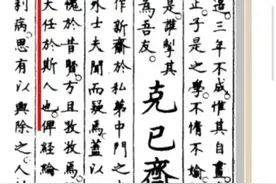 三年不成惟其自畫
正子是之學不惰不媮
是誰孳其
為吾友
克己齋
作新齋於私第中門之
外士夫聞而疑焉蓋以
愧於昔賢方且孜孜焉
大任於斯人也俾經綸
利病思有以興除之人